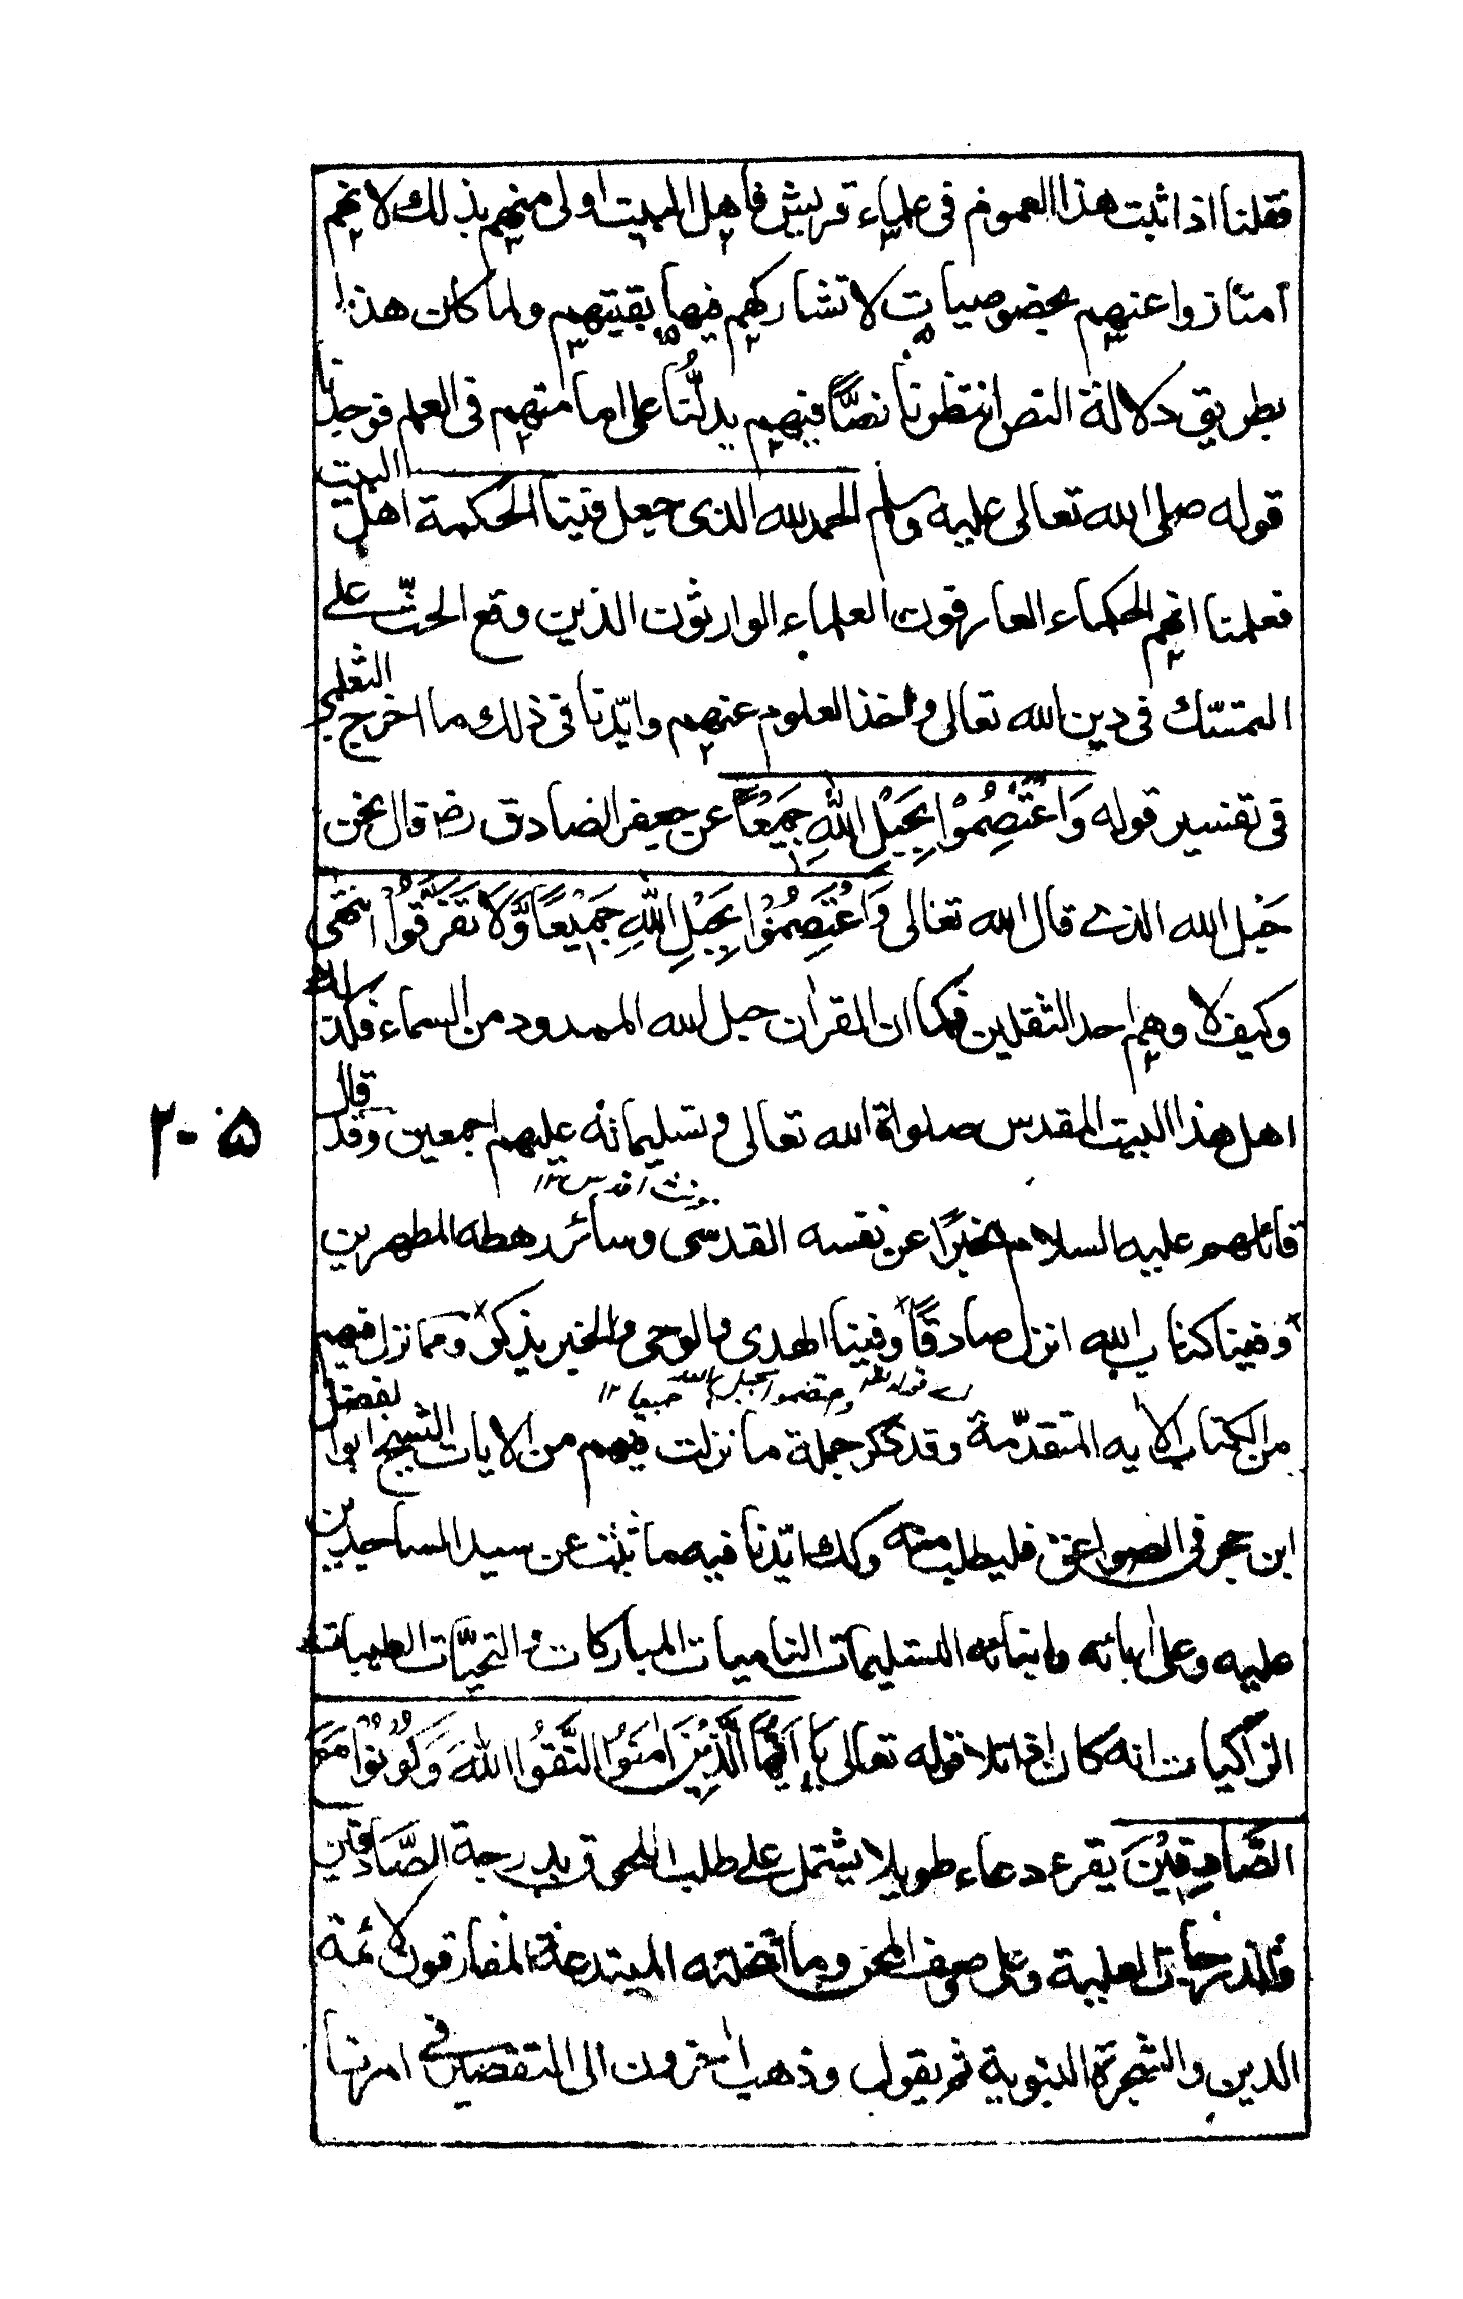 فقلنا اذا ثبت هذا العموم فى علماء قريش فاهل البيت اولى منهم بذلك لانهم
امتازوا عنهم بخصوصيات لا تشاركهم فيها بقيتهم ولما كان هذا
بطريق دلالة النص انتظرنا نصًّا فيهم يدلّنا على امامتهم فى العلم فوجدنا
قوله صلى الله تعالى عليه وسلم الحمد لله الذى جعل فينا الحكمة اهل البيت
فعلمنا انهم الحكماء العارفون العلماء الوارثون الذين وقع الحثّ على
التمسّك فى دين الله تعالى واخذ العلوم عنهم وايّدنا فى ذلك ما اخرج الثعلبى
فى تفسير قوله وَاعْتَصِمُوْا بِحَبْلِ اللّٰهِ جَمِيْعًا عن جعفر الصادق رضـ قال نحن
حَبْل الله الذى قال الله تعالى وَاعْتَصِمُوْا بِحَبْلِ اللّٰهِ جَمِيْعًا وَّلَا تَفَرَّقُوْا انتهى
وكيف لا وهم احد الثقلين فكما ان القران حبل الله الممدود من السماء فكذلك
اهل هذا البيت المقدس صلواة الله تعالى وتسليماته عليهم اجمعين وقد قال
قائلهم عليه السلام مخبرًا عن نفسه القدسى وسائر رهطه المطهرين
وفينا كتاب الله انزل صادقًا وفينا الهدى والوحى والخير يذكر ومما نزل فيهم
اے قوله تعالى واعتصموا بحبل الله جميعا ١٢
من الكتاب الايه المتقدّمة وقد ذكر جملة ما نزلت فيهم من الايات الشيخ ابوالفضل
ابن حجر فى الصواعق فليطلب منه وكك ايّدنا فيه ما ثبت عن سيد الساجدين
عليه وعلى ابائه وابنائه التسليمات الناميات المباركات والتحيّات الطيبات
الزاكيات انه كان اذا تلا قوله تعالى يَا اَيُّهَا الَّذِيْنَ اٰمَنُوا اتَّقُوا اللّٰهَ وَكُوْنُوْا مَعَ
الصَّادِقِيْنَ يقرء دعاء طويلا يشتمل على طلب اللحوق بدرجة الصَّادقين
والدرجات العلية وعلى وصف المحن وما انتحلته المبتدعة المفارقون لائمة
الدين والشجرة النبوية ثم يقول وذهب اٰخرون الى التقصير فى امرنا
٢٠٥